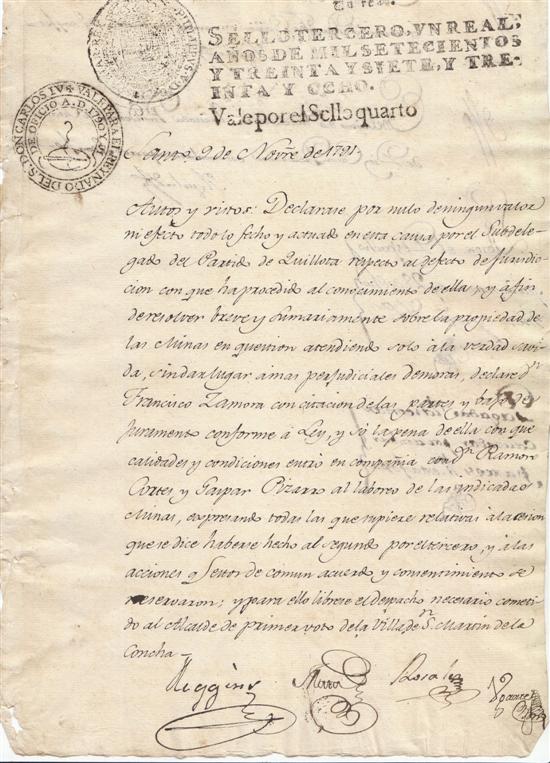 Un real.
SELLO TERCERO, VN REAL,
AÑOS DE MIL SETECIENTOS
Y TREINTA Y SIETE, Y TRE-
INTA Y OCHO.
Vale por el Sello quarto
VALE PARA EL REYNADO DEL S. DON CARLOS IV
DE OFICIO A.D. 1790 Y 91
Santo 9 de Novre de 1791
Autos y vistos: Declarase por nulo de ningun valor
ni efecto todo lo fecho y actuado en esta causa por el Subdele-
gado del Partido de Quillota respecto al defecto de Jurisdic-
cion con que ha procedido al conocimiento de ella, y à fin
de resolver breve y sumariamente sobre la propiedad de
las Minas en question atendiendo solo à la verdad savi-
da, sin dar lugar à mas perjudiciales demoras, declare Dn
Francisco Zamora con citacion de las partes y baxo de
Juramento conforme à Ley, y só la pena de ella con que
calidades y condiciones entró en compañia con Dn Ramon
Cortes y Gaspar Pizarro al laboreo de las indicadas
Minas, expresando todas las que supiere relativas à la cesion
que se dice haberse hecho al segundo por el tercero, y à las
acciones q de comun acuerdo y consentimiento se
reservaron; y para ello librese el despacho necesario cometi-
do al Alcalde de primer voto de la Villa de Sn Martin de la
Concha
Higgins
Rosales